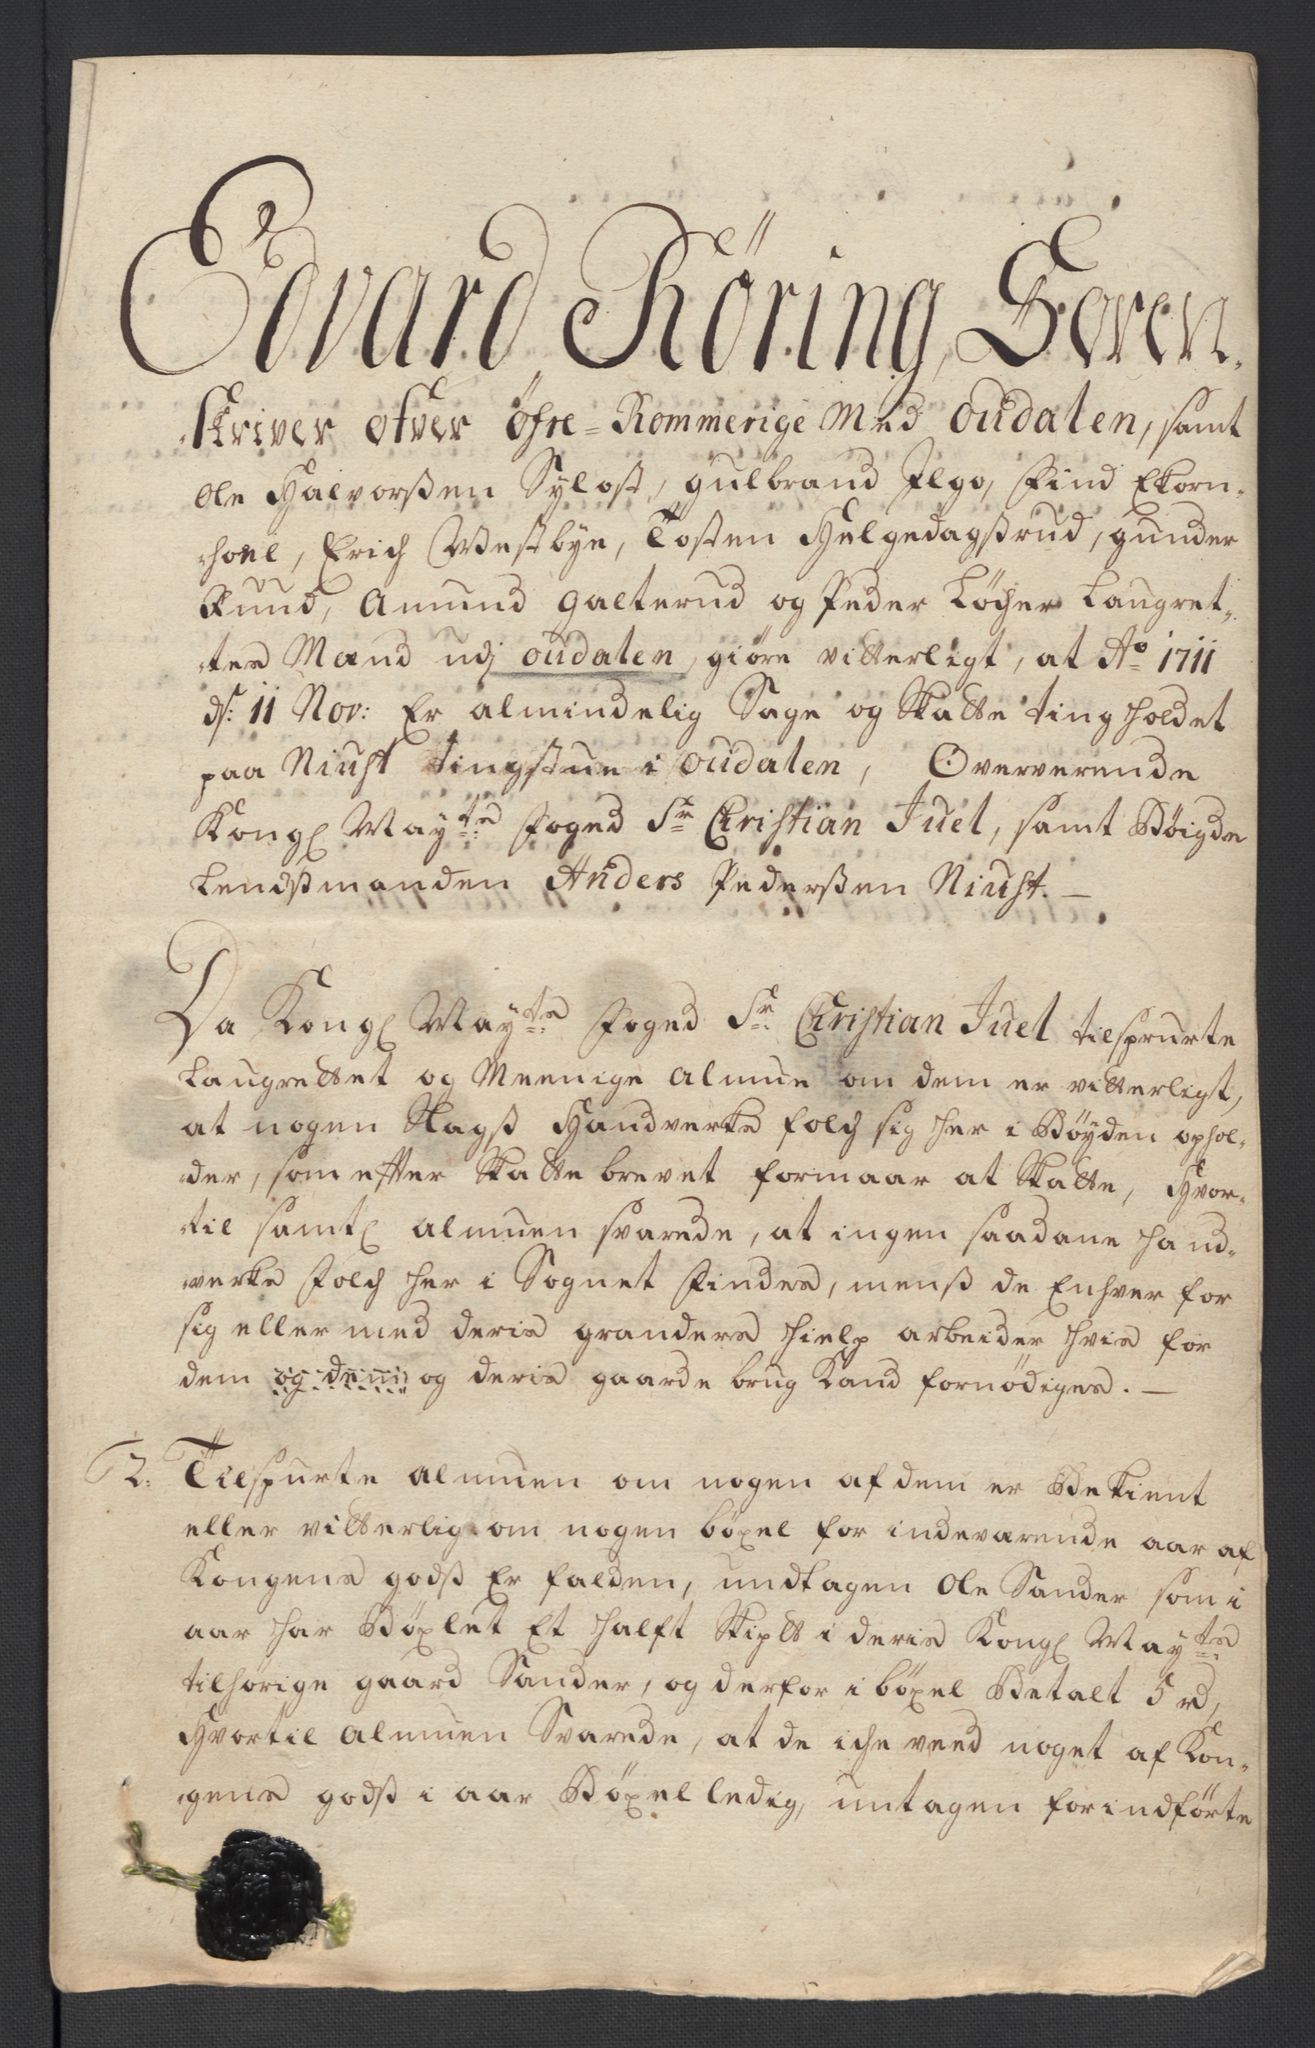 Edvard Röring, Soren-
skriver ofver öfre-Rommerige Med oudalen, samt
Ole Halvorßen Sylost, gulbrand Ilgo, Find Ekorn-
hoel, Erich Westbye, Tosten Helgedagstrud, gunder
Rund, Amund galterud og Peder Löcher Laugret-
tes Mænd udj oudalen, giöre vitterligt, at Ao 1711
ds: 11 Nov: Er almindelig Sage og Skatte ting holdet
paa Niust tingstue i oudalen, Oververende
Kongl Mayts Foged Sr Christian Juel, samt Böigde
Lendsmanden Anders Pederßen Niust. —
Da Kongl Mayts Foged Sr. Christian Juel tilspurte
Laugrettet og Meenige almue om dem er vitterligt,
at nogen Slags Handverks folch sig her i Böyden ophol-
der, som effter Skatte brevet formaar at Skatte, Hvor-
til samtl almuen svarede, at ingen saadane hand-
verks Folch her i Sognet Findes, menß de Enhver for
sig eller med deris granders hielp arbeider hvis for
dem og dem og deris gaarde brug Kand fornödiges. —
2. Tilspurte almuen om nogen af dem er Bekient
eller vitterlig om nogen böxel for indeværende aar af
Kongens godß Er falden, undtagen Ole Sander som i
aar har Böxlet Et halft Skiplt i deris Kongl Mayts
tilhörige gaard Sander, og derfor i böxel Betalt 5 rd,
Hvortil almuen Svarede, at de iche veed noget af Kon-
gens godß i aar Böxel ledig, untagen forindförte